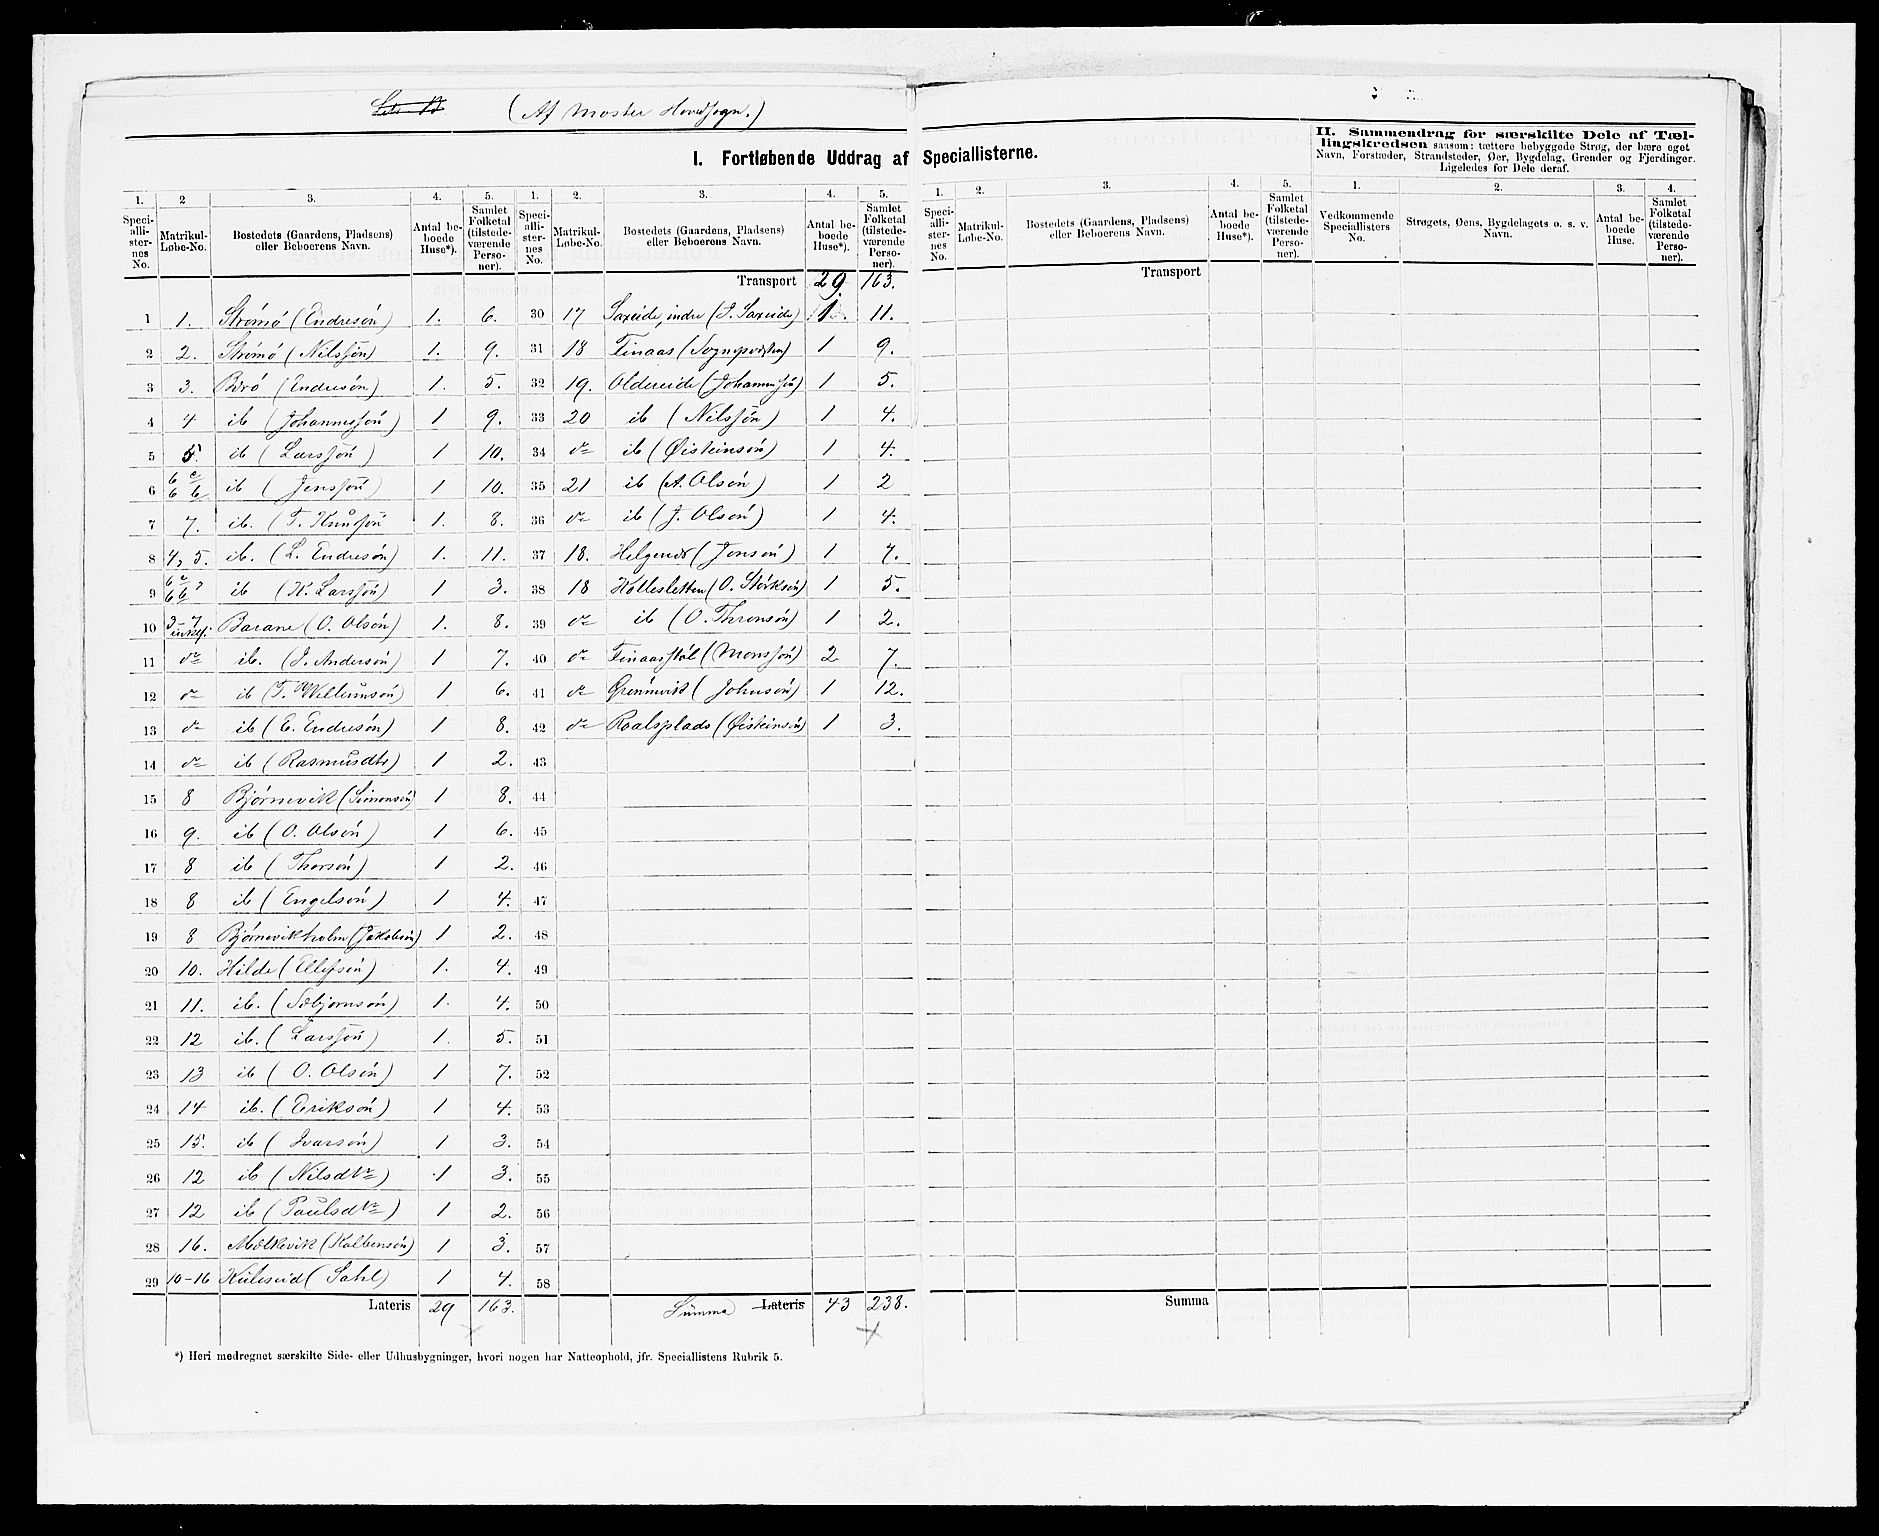 (Af Moster Hovedsogn.)
I. Fortløbende Uddrag af Speciallisterne.
II. Sammendrag for særskilte Dele af Tællingskredsen saasom: tættere bebyggede Strøg, der bære eget
Navn, Forstæder, Strandsteder, Øer, Bygdelag, Grender og Fjerdinger.
Ligeledes for Dele deraf.
1. 2 3. 4. 5. 1. 2. 3. 4. 5. 1. 2. 3. 4. 5. 1. 2. 3. 4.
Speciallisternes No. Matrikul-Løbe-No. Bostedets (Gaardens, Pladsens) eller Beboerens Navn. Antal beboede Huse*). Samlet Folketal (tilstedeværende Personer).
Speciallisternes No. Matrikul-Løbe-No. Bostedets (Gaardens, Pladsens) eller Beboerens Navn. Antal beboede Huse*). Samlet Folketal (tilstedeværende Personer).
Speciallisternes No. Matrikul-Løbe-No. Bostedets (Gaardens, Pladsens) eller Beboerens Navn. Antal beboede Huse*). Samlet Folketal (tilstedeværende Personer).
Vedkommende Speciallisters No. Strøgets, Øens, Bygdelagets o. s. v. Navn. Antal beboede Huse. Samlet Folketal (tilstedeværende Personer).
Transport 29. 163. Transport
1 1. Strømø (Endresøn) 1. 6. 30 17 Saxeide, indre (J. Saxeide) 1. 11.
2 2. Strømø (Nilssøn) 1. 9. 31 18 Finaas (Sognepræsten) 1 9.
3 3. Børø (Endresøn) 1. 5. 32 19. Oldereide (Johannssøn) 1 5.
4 4 ib (Johannssøn) 1 9. 33 20 ib (Nilssøn) 1 4.
5 5. ib (Larssøn) 1 10. 34 do ib (Øisteinsøn) 1 4.
6 ib (Jenssøn) 1 10. 35 21 ib (A. Olsøn) 1 2
7 7. ib. (T. Knussøn 1. 8. 36 do ib (J. Olsøn) 1 4.
8 4, 5. ib. (L. Endresøn) 1. 11. 37 18. (Jonsøn) 1 7.
9 ib (K. Larssøn) 1 3. 38 18 Kollesletten (O. Størksøn) 1 5.
10 3-7 Barane (O. Olsøn) 1. 8. 39 do ib (O. Thronsøn) 1 2.
11 do ib. (J. Andersøn) 1 7. 40 do Finaasstøl (Monssøn) 2 7.
12 do ib (T. Willumsøn) 1 6. 41 do Grønnevik (Johnsøn) 1 12.
13 do ib (E. Endresøn) 1 8. 42 do Roalsplads (Øisteinsøn) 1 3.
14 do ib (Rasmusdtr) 1 2. 43
15 8 Bjørnevik (Simonsøn) 1 8. 44
16 9. ib (O. Olsøn) 1 6. 45
17 8 ib (Thorsøn) 1 2. 46
18 8 ib (Engelsøn) 1 4. 47
19 8 Bjørnevikholm (Jakobsøn) 1 2. 48
20 10. Hilde (Ellefsøn) 1. 4. 49
21 11. ib. (Sæbjørnsøn) 1. 4. 50
22 12 ib. (Larssøn) 1. 5. 51
23 13 ib (O. Olsøn) 1 7. 52
24 14 ib. (Eriksøn) 1 4. 53
25 15. ib (Ivarsøn) 1 3. 54
26 12 ib (Nilsdtr) 1 3. 55
27 12 ib (Paulsdtr) 1 2. 56
28 16. Mælkevik (Kolbensøn) 1 3. 57
29 10-16 Kulseid (Sahl) 1 4. 58
Lateris 29 163. Summa Lateris 43 238. Summa
*) Heri medregnet særskilte Side- eller Udhusbygninger, hvori nogen har Natteophold, jfr. Speciallistens Rubrik 5.